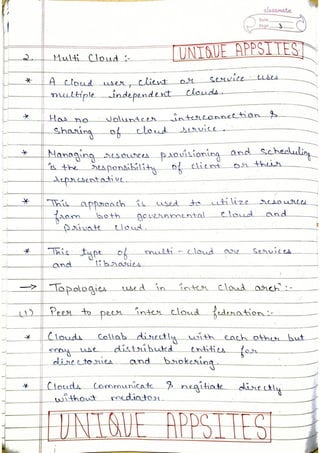 classmate
Date
Page 3
UNIQUE APPSITES
2. Multi Cloud :-
* A cloud user, client or service uses
multiple independent clouds.
* Has no volunteer interconnection &
sharing of cloud service.
* Managing resources provisioning and scheduling
is the responsibility of client or their
representative.
* This approach is used to utilize resources
from both governmental cloud and
private cloud.
* This type of multi-cloud are services
and libraries.
→ Topologies used in inter cloud arch :-
(1) Peer to peer inter cloud federation :-
* Clouds collab directly with each other but
may use distributed entities for
directories and brokering.
* Clouds communicate & negitiate directly
without mediator.
UNIQUE APPSITES